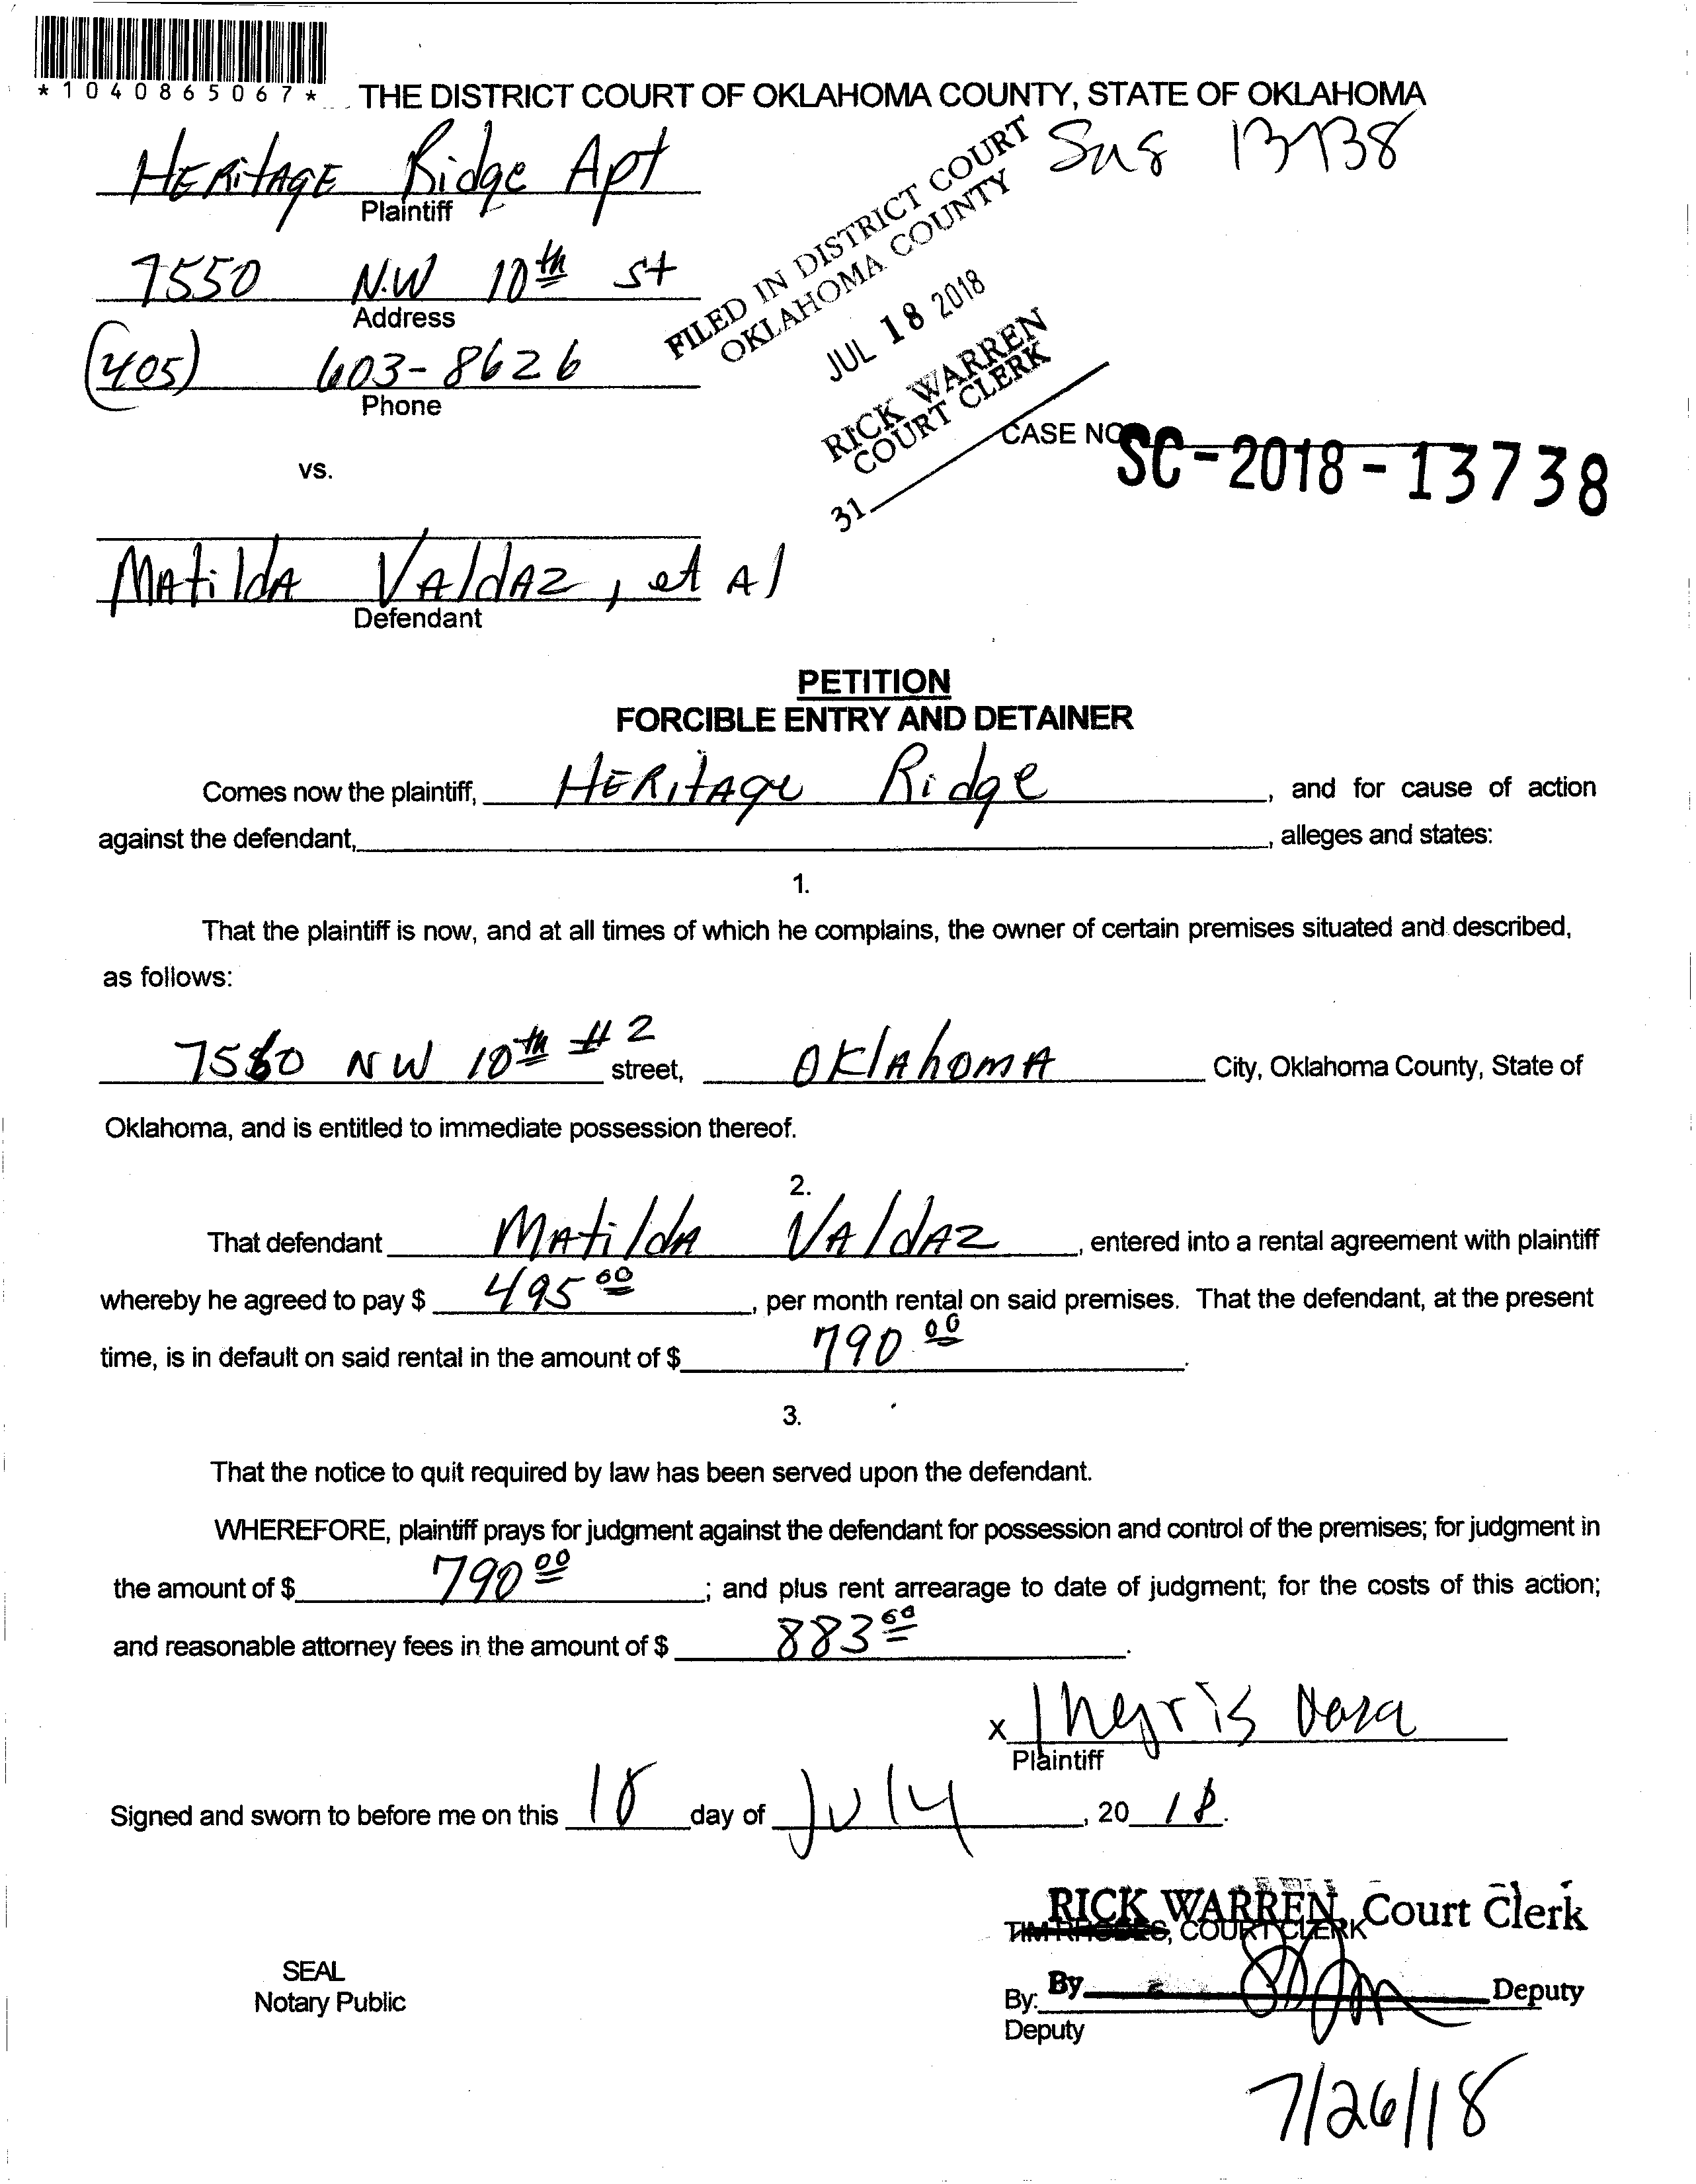 *1040865067*
THE DISTRICT COURT OF OKLAHOMA COUNTY, STATE OF OKLAHOMA
HERitAGE Ridge Apt
Plaintiff
7550 N.W 10th St
Address
(405) 603-8626
Phone
FILED IN DISTRICT COURT
OKLAHOMA COUNTY
JUL 18 2018
RICK WARREN
COURT CLERK
31
CASE NO
SC-2018-13738
vs.
MAtildA VAldAz, et Al
Defendant
PETITION
FORCIBLE ENTRY AND DETAINER
Comes now the plaintiff, HERitAge Ridge, and for cause of action
against the defendant, , alleges and states:
1.
That the plaintiff is now, and at all times of which he complains, the owner of certain premises situated and described,
as follows:
NW 10th # 2 street, OklAhomA City, Oklahoma County, State of
Oklahoma, and is entitled to immediate possession thereof.
2.
That defendant MAtildA VAldAz, entered into a rental agreement with plaintiff
whereby he agreed to pay $ 495 00, per month rental on said premises. That the defendant, at the present
time, is in default on said rental in the amount of $ 790 00.
3.
That the notice to quit required by law has been served upon the defendant.
WHEREFORE, plaintiff prays for judgment against the defendant for possession and control of the premises; for judgment in
the amount of $ 790 00; and plus rent arrearage to date of judgment; for the costs of this action;
and reasonable attorney fees in the amount of $ 883.
x
Plaintiff
Signed and sworn to before me on this 18 day of July, 20 18.
RICK WARREN, Court Clerk
TIM RHODES, COURT CLERK
SEAL
Notary Public
By: By Deputy
Deputy
7/26/18